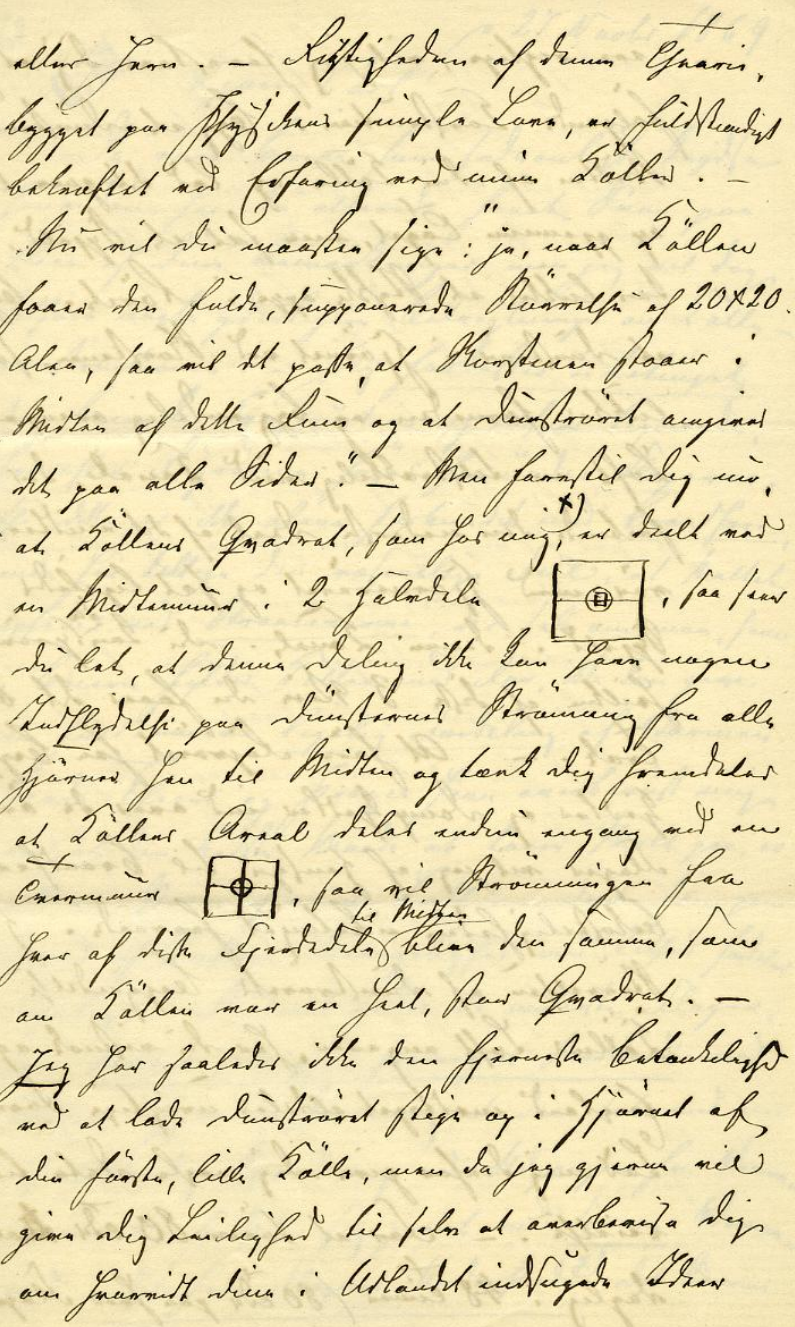 eller Jern. — Rigtigheden af denne Theorie,
bygget paa Physikens simple Love, er fuldstændigt
bekræftet ved Erfaring ved mine Köller. —
Nu vil Du maaskee sige: "ja, naar Köllen
faaer den fulde, supponerede Størrelse af 20X20
Alen, saa vil det passe, at Skorstenen staaer i
Midten af dette Rum og at Dunströret omgiver
det paa alle Sider." — Men forestil Dig nu,
at Köllens Qvadrat, som hos mig x), er deelt ved
en Midtemuur i 2 Halvdele , saa seer
Du let, at denne Deling ikke kan have nogen
Indflydelse paa Dunsternes Strömning fra alle
Hjörner hen til Midten og tænk Dig fremdeles
at Köllens Areal deles endnu engang ved en
Tvermuur , saa vil Strömningen fra
til Midten
hver af disse Fjerdedele blive den samme, som
om Köllen var en heel, stor Qvadrat. —
Jeg har saaledes ikke den fjerneste Betænkelighed
ved at lade Dunströret stige op i Hjörnet af
din förste, lille Kölle, men da jeg gjerne vil
give Dig Leilighed til selv at overbevise Dig
om hvorvidt dine i Udlandet indsugede Ideer